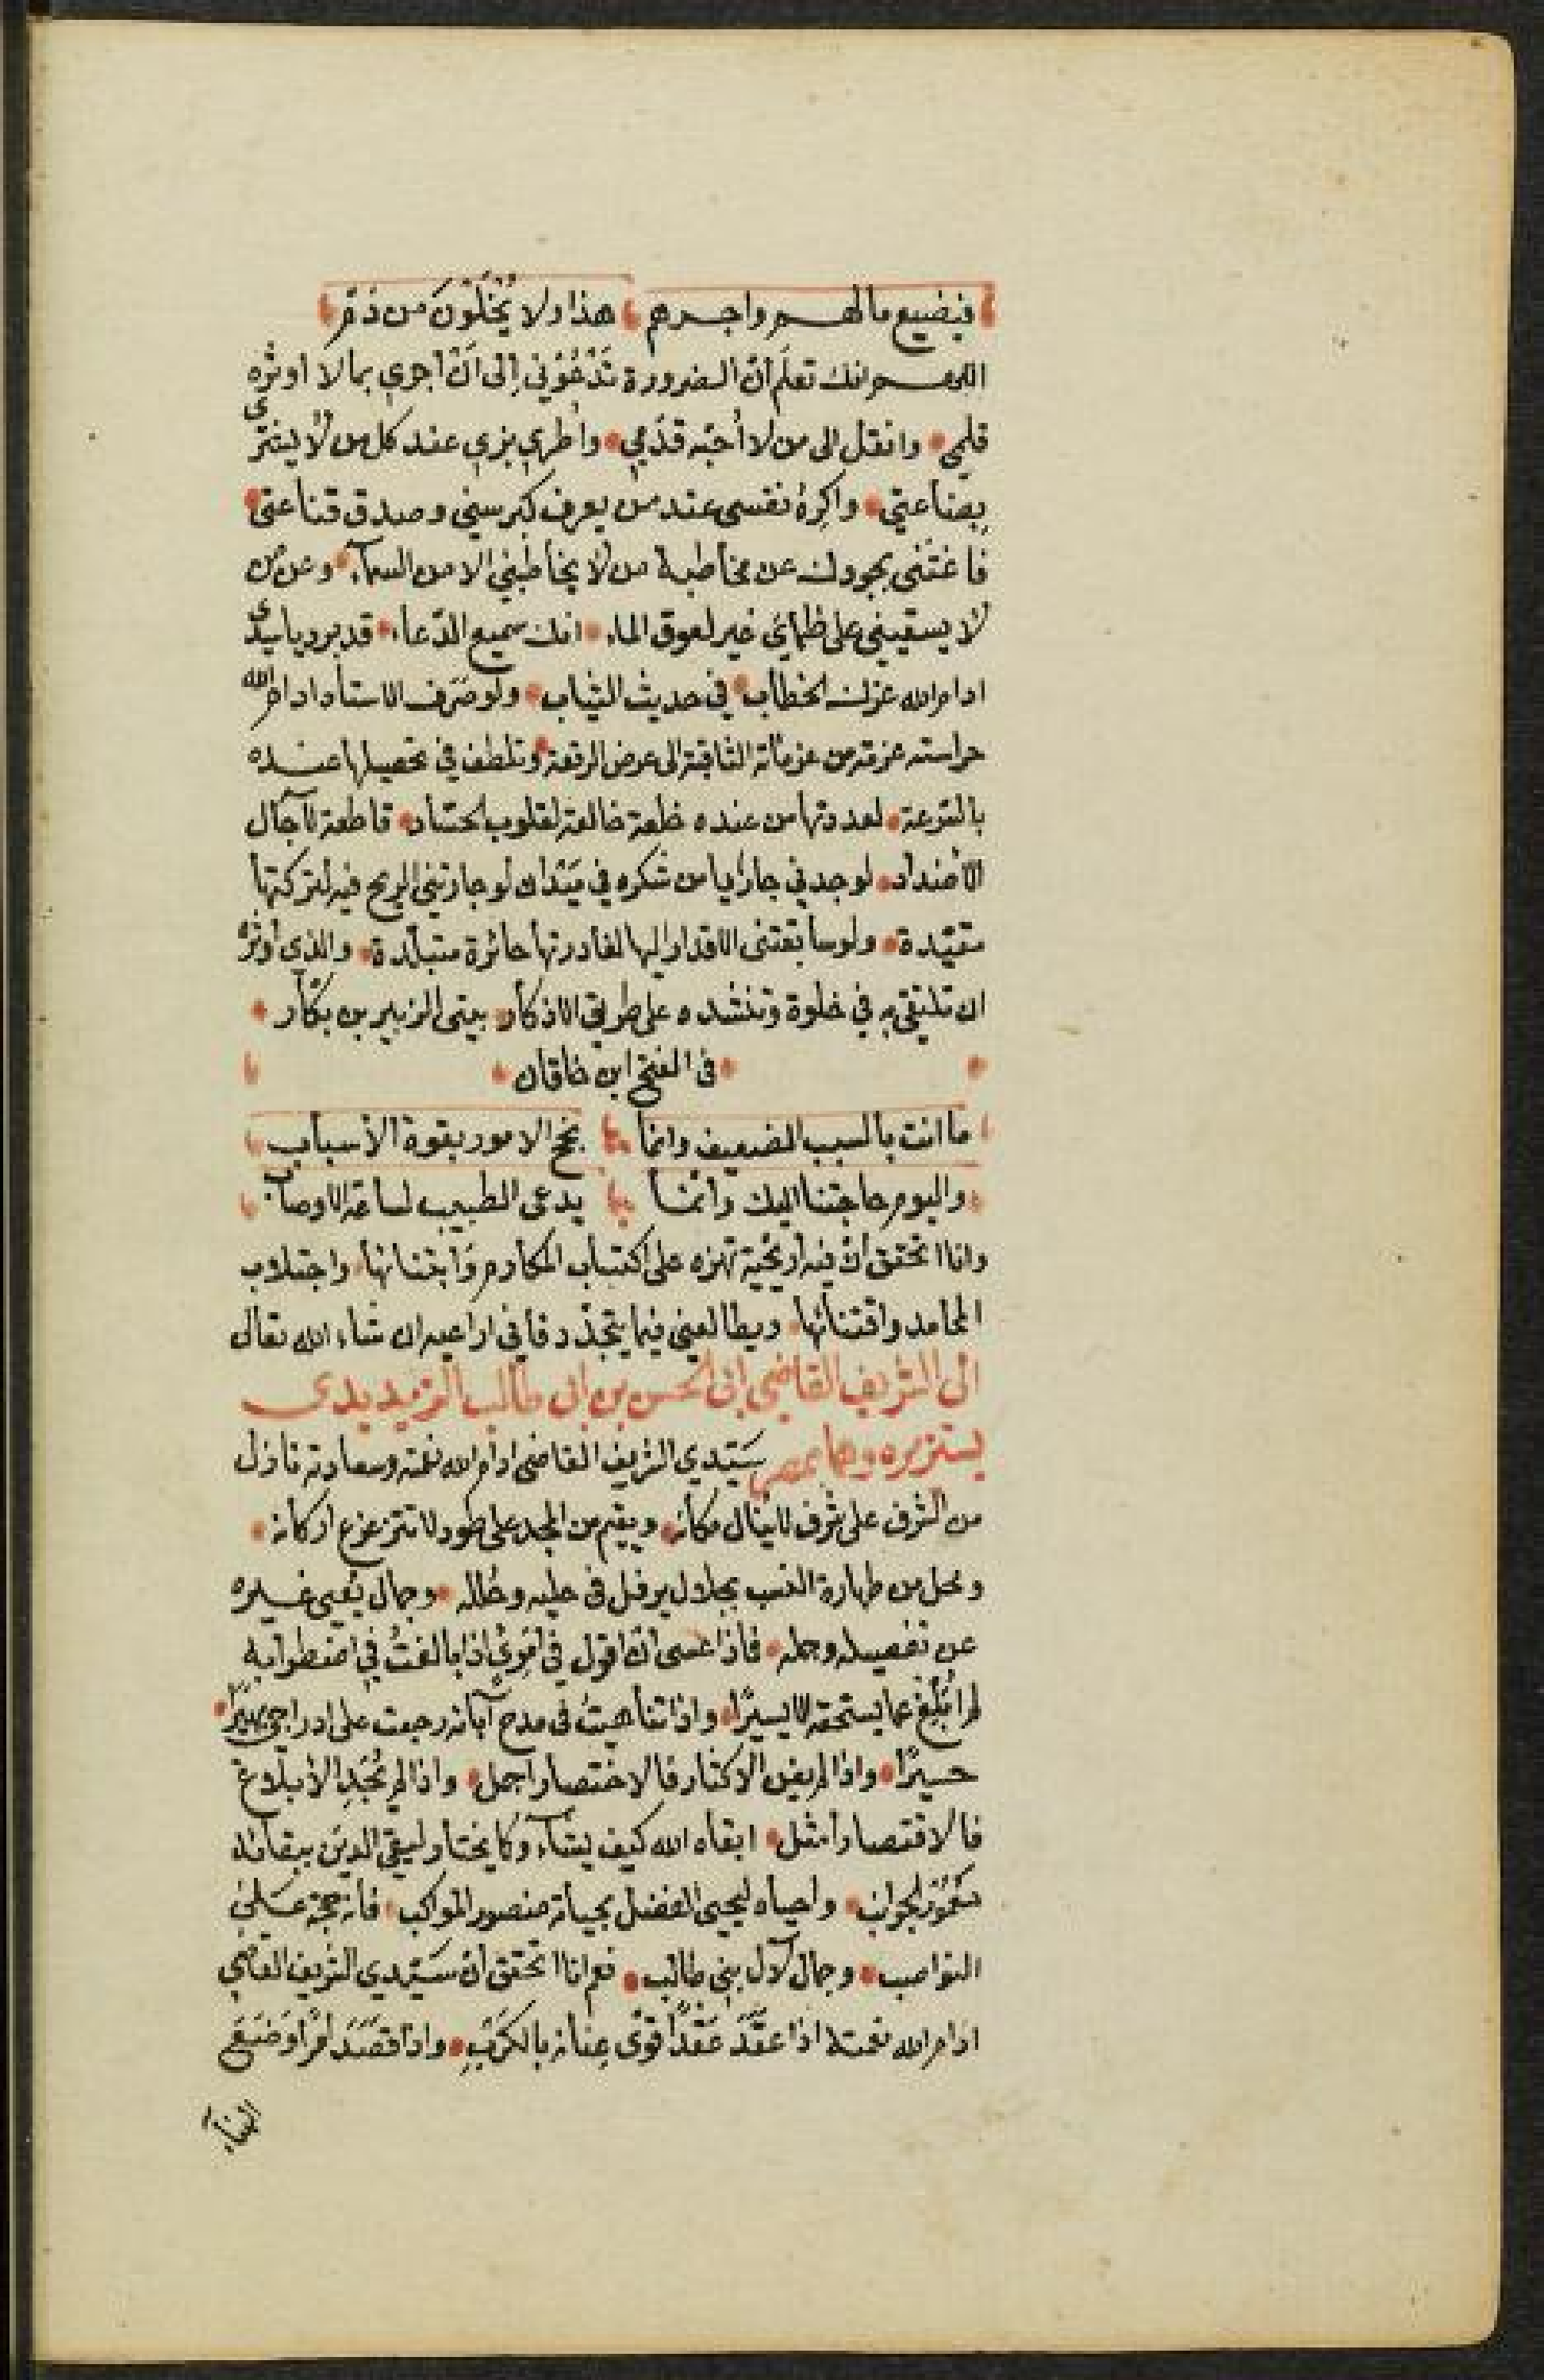 فيضيع مالهم واجرهم هذا ولا يُخْلَوْنَ من ذمّ
اللهم انك تعلَم أن الضرورة تَدْعُوني إلى اَنْ اجري بما لا اوثره
قلمي وانقل الى من لا أحبّه قدَمي واُطري بزي عند كل من لا يغترّ
بصناعتي واكرِهُ نفسى عند من يعرف كبر سني وصدق قناعتى
فاغننى بجودك عن مخاطبة من لا يخاطبني الا من السمآء وعن من
لا يسقيني على ظمائي غير لعوق الماء انك سميع الدّعاء قد يرد يا سيدي
ادام الله عزك الخطاب في حديث الثياب ولو صَرف الاستاد ادام الله
حراسته عزمة من عزماته الثاقبة الى عرض الرقعة وتلطف في تحصيلها عنده
بالسّرعة لعددتها من عنده خلعة خالعة لقلوب الحسّاد قاطعة لآجال
الأضداد لوجدني جاريا من شكره في مَيْدان لو جارتني الريح فيه لتركتها
مقيّدة ولو سابقتنى الاقدار اليها لغادرتها حائرة متبلّدة والذي أوثره
ان تلتقي به في خلوة وتنشده على طريق الاذكار بيتي الزبير بن بكّار
فى الفتح ابن خاقان
ما انت بالسبب الضعيف وانما نجح الامور بقوة الأسباب
واليوم حاجتنا اليك وانّما يدعى الطبيب لساعة الاوصاب
وانا اتحقق أنّ فيه أريَحيّة تهزه على اكتساب المكارم وابتنائها واجتلاب
المحامد واقتنائها ويطالعني فيما يتجدّد فانى اراعيه ان شاء الله تعالى
الى الشريف القاضي ابى الحسن بن ابى طالب الزيدى
يستزيره وهما بمصر سَيّدي الشريف القاضى ادام الله نعمته وسعادته نازل
من الشرف على شرف لا ينال مكانه ومقيم من المجد على طود لا تتزعزع اركانه
ومحل من طهارة النسب بجلال يرفل فى حليه وحُلله وجمال يُعيى غيره
عن تفصيله وجمله فماذا عسى ان اقول في امْرئ اذا بالغتُ في
لم اُبْلغ عما يستحقه الا يسيرًا واذا تناهيتُ فى مدح آبائه رجعت على ادراجي
حسيرًا واذا لم يغن الاكثار فالاختصار اجمل واذا لم يُجْدِ الأبلاغ
فالاقتصار أمثل ابقاه الله كيف يشآء وكما يختار ليبقى الدين ببقائه
واحياه ليحيى الفضل بحياته منصور المواكب فانه حجة على
النواصب وجمال لآل بنى طالب فوانا اتحقق أنّ سَيّدي الشريف القاضى
ادام الله نعمته اذا عقَدَ عَقْدًا قوّى عنانه بالكرَب واذا قصَدَ امْرًا وَضَعَ
الهنآء